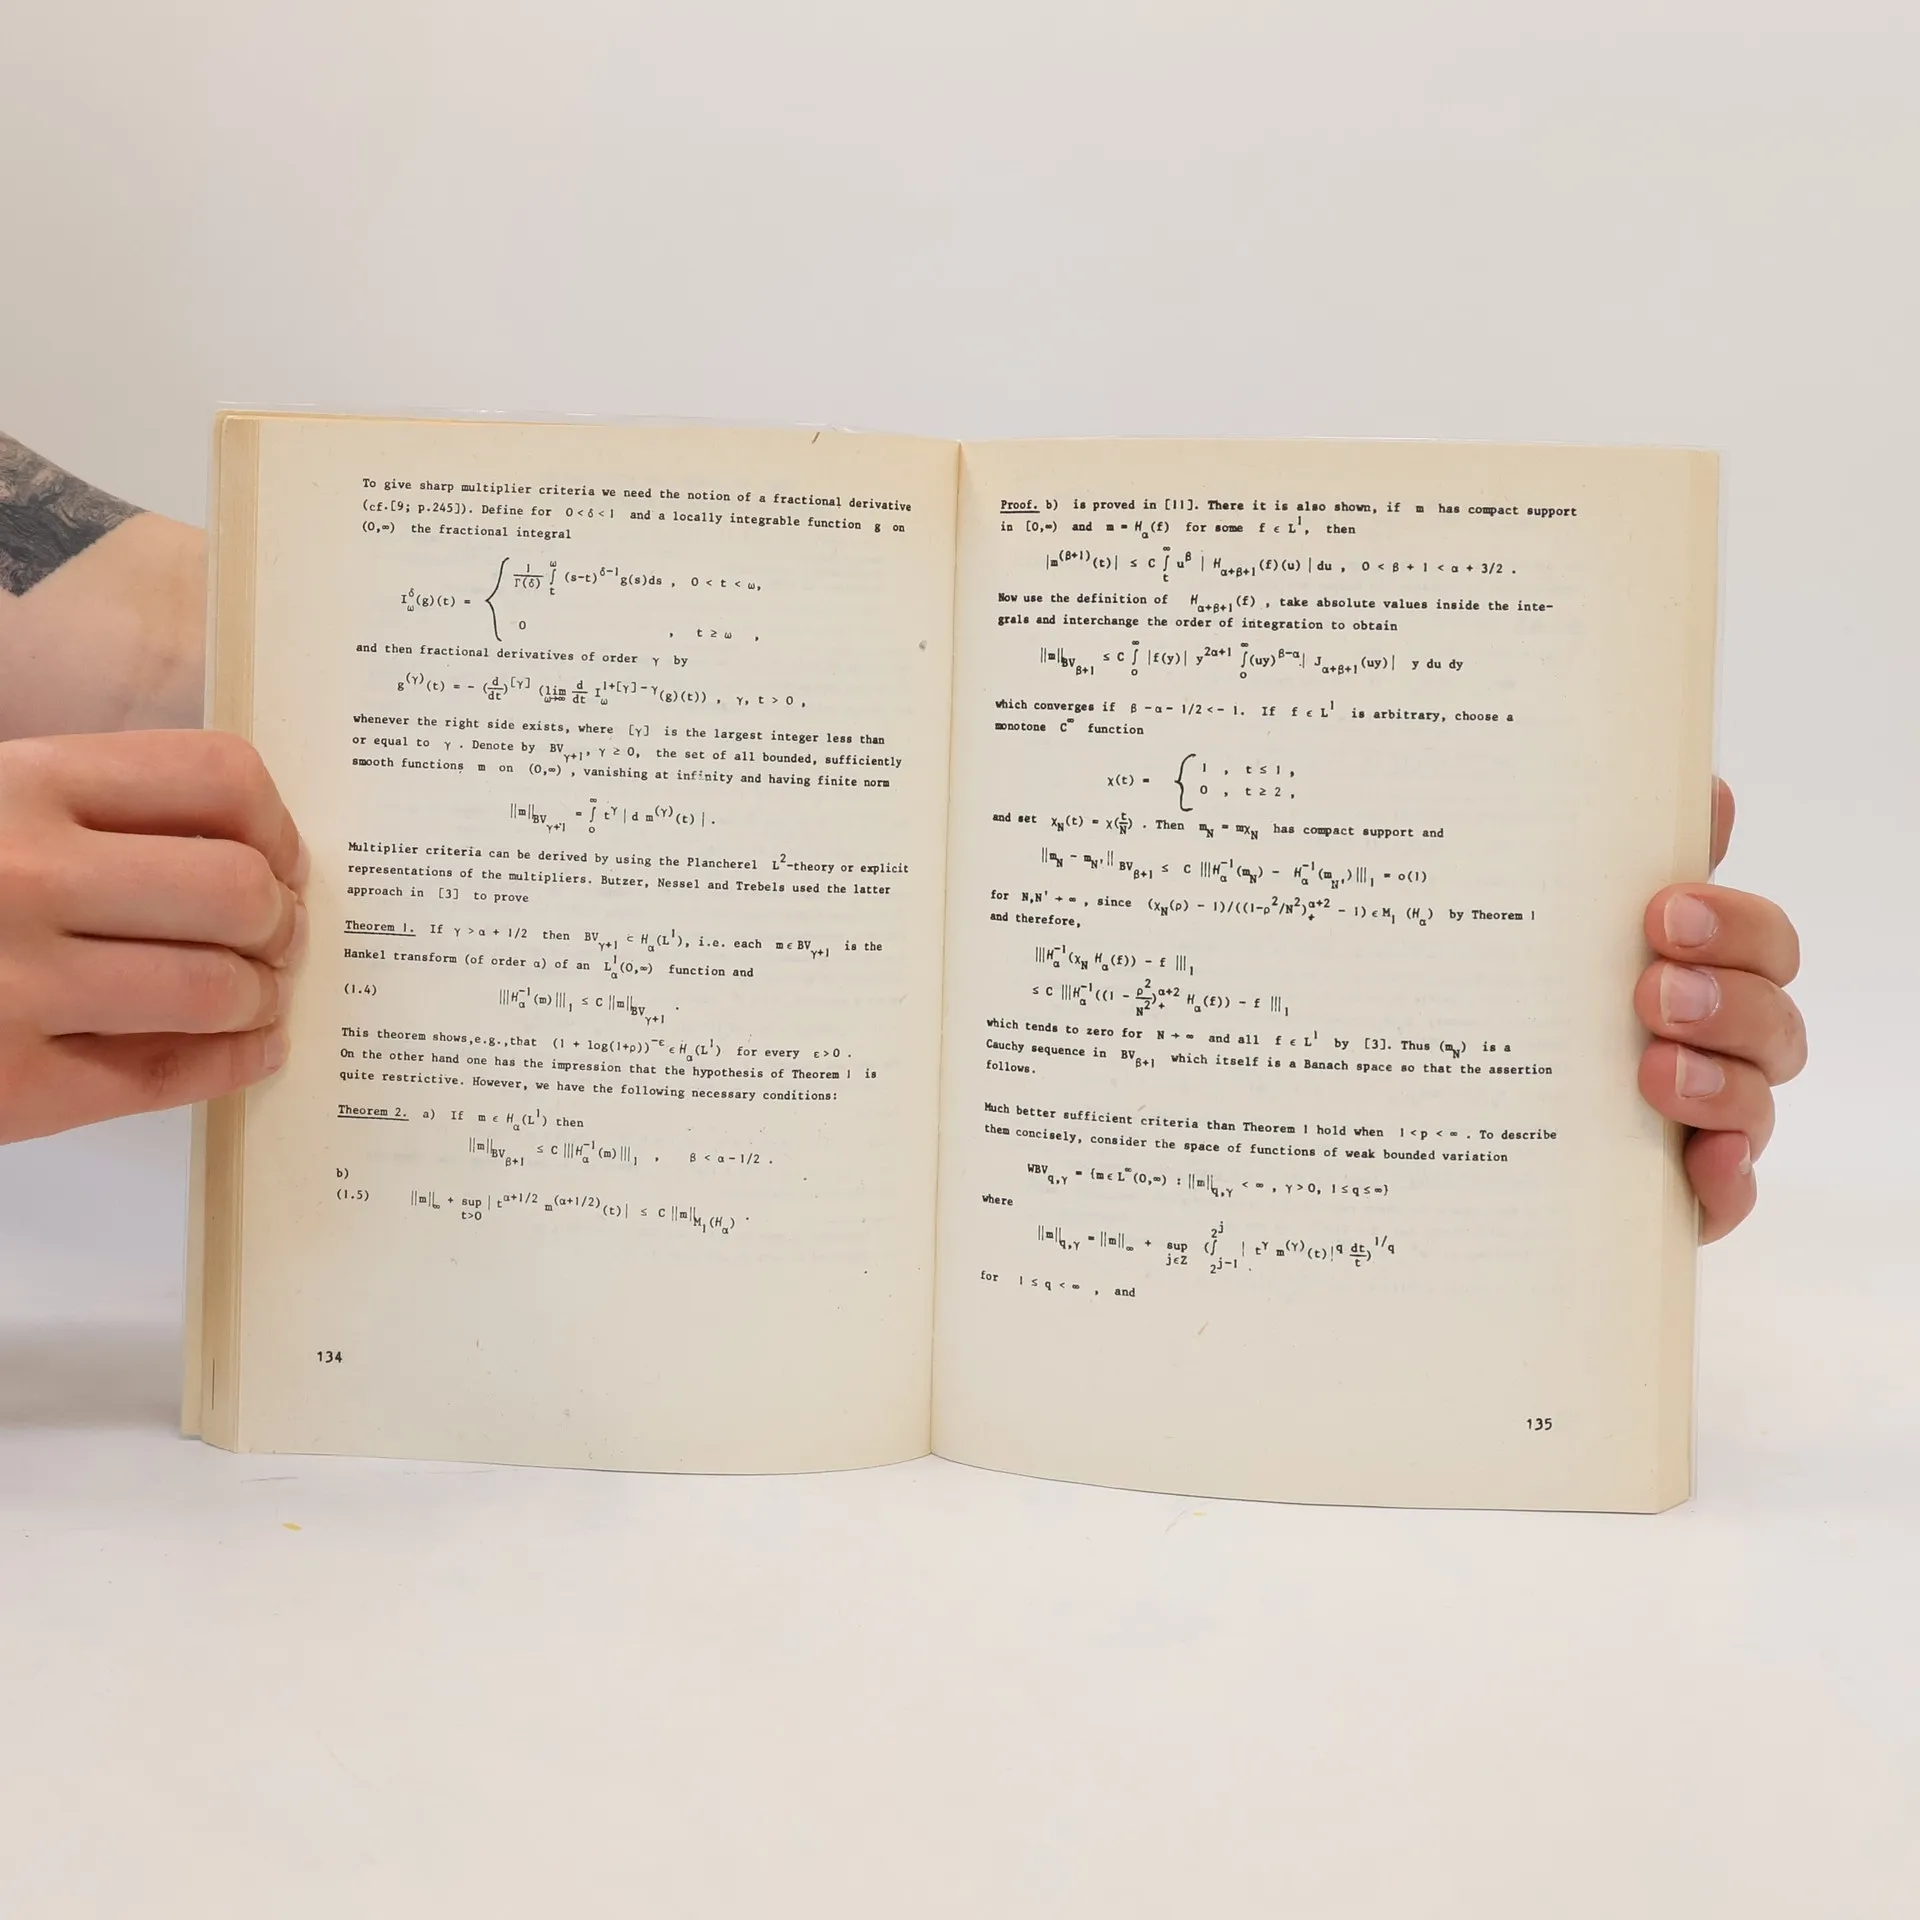 To give sharp multiplier criteria we need the notion of a fractional derivative
(cf.[9; p.245]). Define for 0 < δ < 1 and a locally integrable function g on
(0,∞) the fractional integral
I_ω^δ(g)(t) = { 1/Γ(δ) ∫_t^ω (s-t)^{δ-1} g(s)ds , 0 < t < ω,
0 , t ≥ ω ,
and then fractional derivatives of order γ by
g^{(γ)}(t) = - (d/dt)^{[γ]} (lim_{ω→∞} d/dt I_ω^{1+[γ]-γ}(g)(t)) , γ, t > 0 ,
whenever the right side exists, where [γ] is the largest integer less than
or equal to γ . Denote by BV_{γ+1}, γ ≥ 0, the set of all bounded, sufficiently
smooth functions m on (0,∞) , vanishing at infinity and having finite norm
||m||_{BV_{γ+1}} = ∫_0^∞ t^γ | d m^{(γ)}(t) | .
Multiplier criteria can be derived by using the Plancherel L^2-theory or explicit
representations of the multipliers. Butzer, Nessel and Trebels used the latter
approach in [3] to prove
Theorem 1. If γ > α + 1/2 then BV_{γ+1} ⊂ H_α(L^1), i.e. each m ϵ BV_{γ+1} is the
Hankel transform (of order α) of an L_α^1(0,∞) function and
(1.4) |||H_α^{-1}(m)|||_1 ≤ C ||m||_{BV_{γ+1}} .
This theorem shows,e.g.,that (1 + log(1+ρ))^{-ε} ϵ H_α(L^1) for every ε>0 .
On the other hand one has the impression that the hypothesis of Theorem 1 is
quite restrictive. However, we have the following necessary conditions:
Theorem 2. a) If m ϵ H_α(L^1) then
||m||_{BV_{β+1}} ≤ C |||H_α^{-1}(m)|||_1 , β < α-1/2 .
b)
(1.5) ||m||_∞ + sup_{t>0} | t^{α+1/2} m^{(α+1/2)}(t)| ≤ C ||m||_{M_1(H_α)} .
134
Proof. b) is proved in [11]. There it is also shown, if m has compact support
in [0,∞) and m = H_α(f) for some f ϵ L^1, then
|m^{(β+1)}(t)| ≤ C ∫_t^∞ u^β | H_{α+β+1}(f)(u) | du , 0 < β + 1 < α + 3/2 .
Now use the definition of H_{α+β+1}(f) , take absolute values inside the inte-
grals and interchange the order of integration to obtain
||m||_{BV_{β+1}} ≤ C ∫_0^∞ |f(y)| y^{2α+1} ∫_0^∞ (uy)^{β-α} | J_{α+β+1}(uy)| y du dy
which converges if β - α - 1/2 < - 1. If f ϵ L^1 is arbitrary, choose a
monotone C^∞ function
χ(t) = { 1 , t ≤ 1 ,
0 , t ≥ 2 ,
and set χ_N(t) = χ(t/N) . Then m_N = mχ_N has compact support and
||m_N - m_{N'}||_{BV_{β+1}} ≤ C |||H_α^{-1}(m_N) - H_α^{-1}(m_{N'})|||_1 = o(1)
for N,N' → ∞ , since (χ_N(ρ) - 1)/((1-ρ^2/N^2)_+^{α+2} - 1) ϵ M_1 (H_α) by Theorem 1
and therefore,
|||H_α^{-1}(χ_N H_α(f)) - f |||_1
≤ C |||H_α^{-1}((1 - ρ^2/N^2)_+^{α+2} H_α(f)) - f |||_1
which tends to zero for N → ∞ and all f ϵ L^1 by [3]. Thus (m_N) is a
Cauchy sequence in BV_{β+1} which itself is a Banach space so that the assertion
follows.
Much better sufficient criteria than Theorem 1 hold when 1 < p < ∞ . To describe
them concisely, consider the space of functions of weak bounded variation
WBV_{q,γ} = {m ϵ L^∞(0,∞) : ||m||_{q,γ} < ∞ , γ > 0, 1 ≤ q ≤ ∞}
where
||m||_{q,γ} = ||m||_∞ + sup_{jϵZ} (∫_{2^{j-1}}^{2^j} | t^γ m^{(γ)}(t)|^q dt/t)^{1/q}
for 1 ≤ q < ∞ , and
135